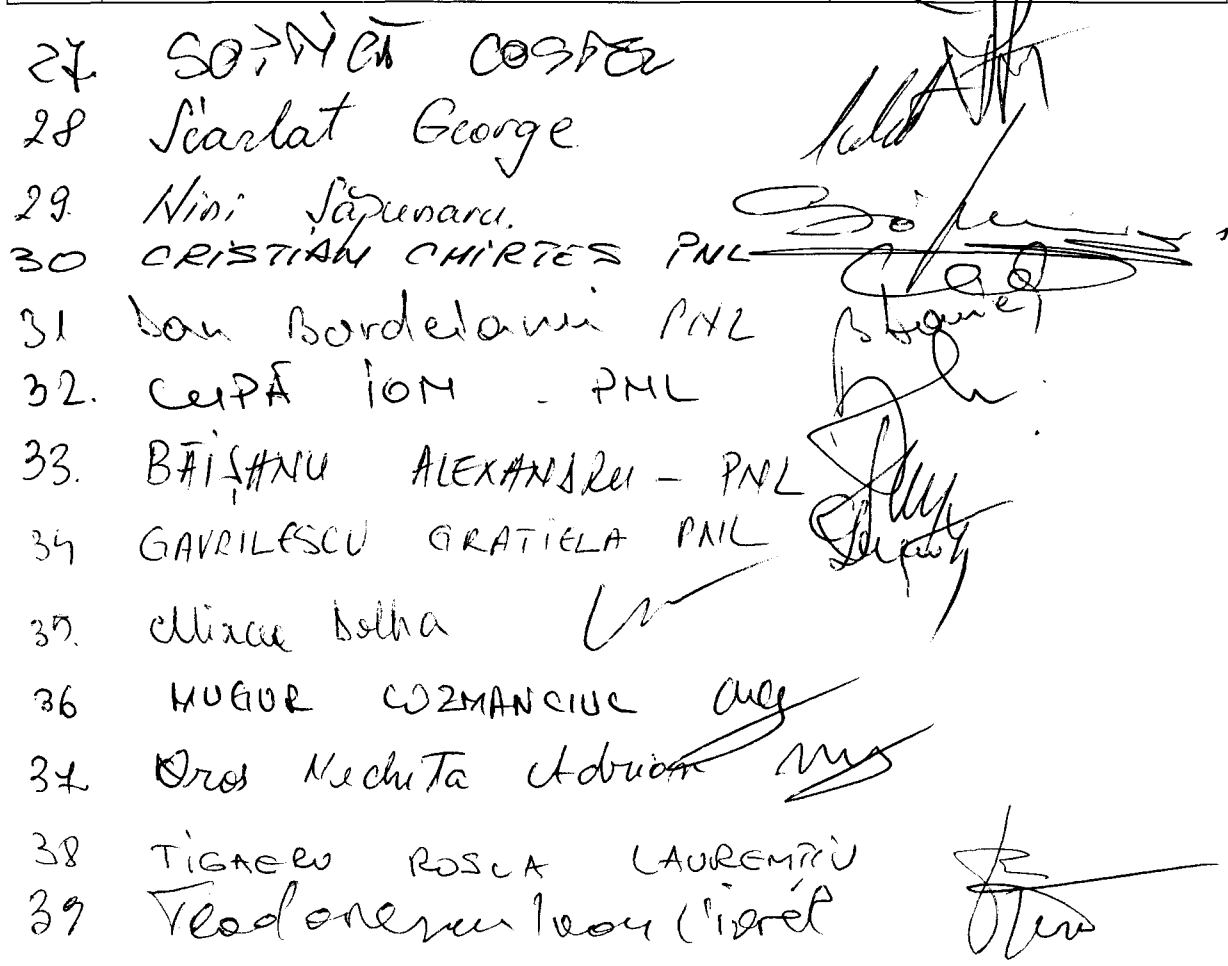 27. ȘOPTICĂ COSTEL
28 Scarlat George
29. Nini Săpunaru.
30 CRISTIAN CHIRTEȘ PNL
31 Dan Bordeianu PNL
32. CUPĂ ION - PNL
33. BĂIȘANU ALEXANDRU - PNL
34 GAVRILESCU GRATIELA PNL
35. Mircea Dolha
36 MUGUR COZMANCIUC
37. Oros Nechita Adrian
38 TIGAERU ROSCA LAURENȚIU
39 Teodorescu Ioan Viorel